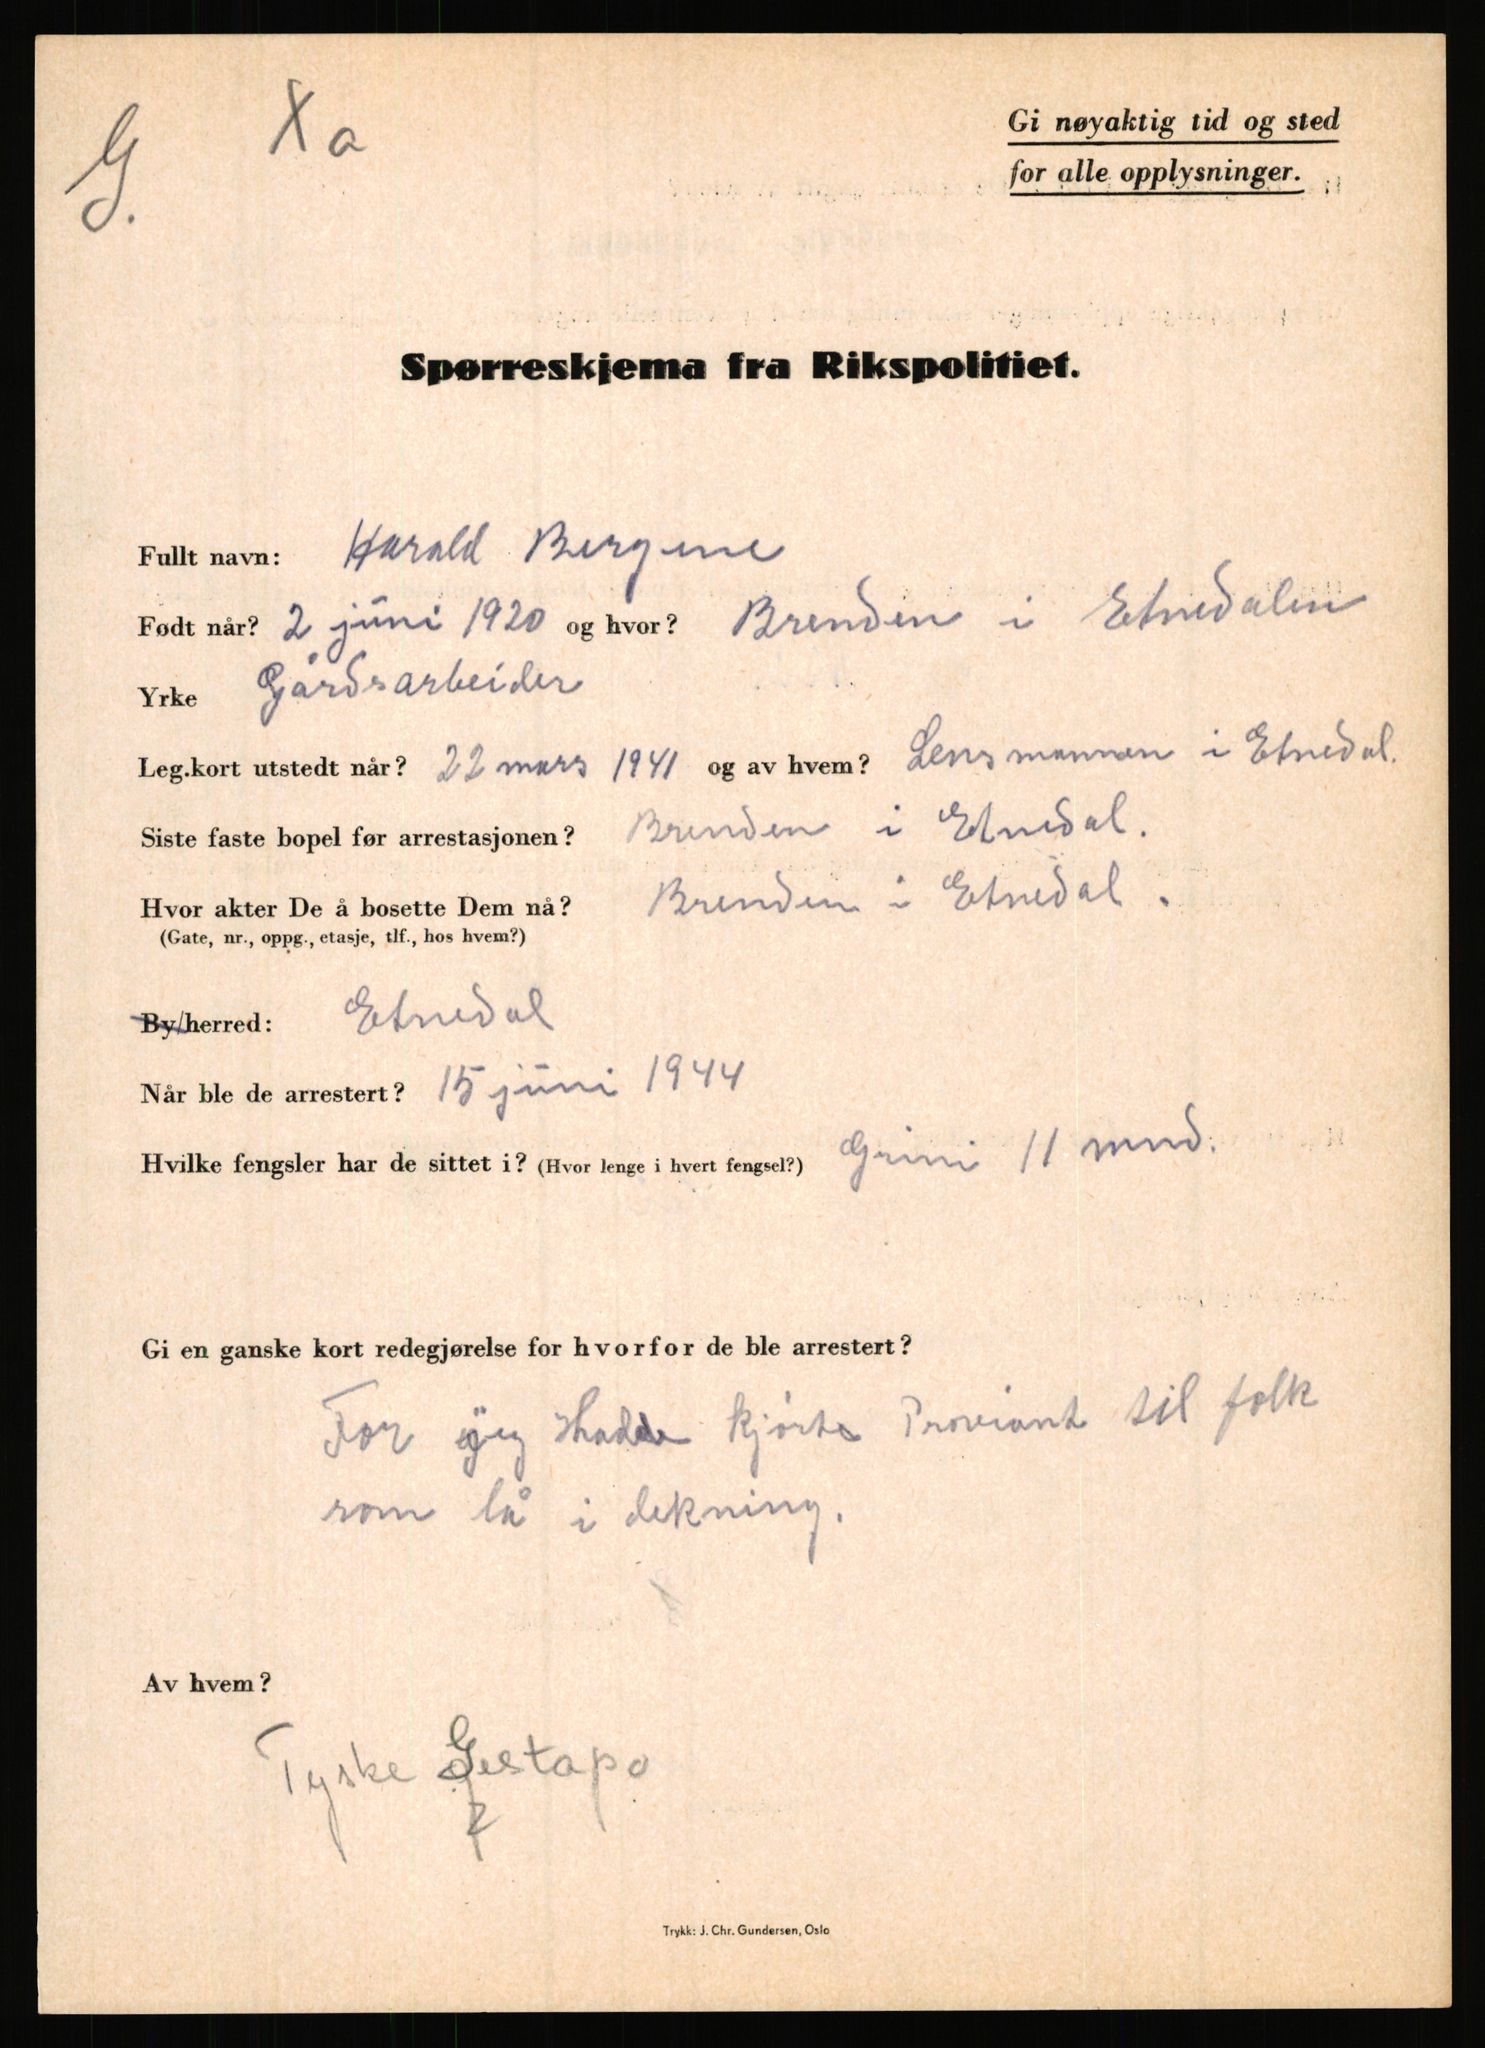 G.
Xa
Gi nøyaktig tid og sted
for alle opplysninger.
Spørreskjema fra Rikspolitiet.
Fullt navn: Harald Bergene
Født når? 2 juni 1920 og hvor? Brenden i Etnedalen
Yrke Gårdsarbeider
Leg.kort utstedt når? 22 mars 1941 og av hvem? Lensmannen i Etnedal.
Siste faste bopel før arrestasjonen? Brenden i Etnedal.
Hvor akter De å bosette Dem nå? Brenden i Etnedal.
(Gate, nr., oppg., etasje, tlf., hos hvem?)
By/herred: Etnedal
Når ble de arrestert? 15 juni 1944
Hvilke fengsler har de sittet i? (Hvor lenge i hvert fengsel?) Grini 11 mnd.
Gi en ganske kort redegjørelse for hvorfor de ble arrestert?
For jeg hadde kjørt Proviant til folk
som lå i dekning.
Av hvem?
Tyske Gestapo
Trykk: J. Chr. Gundersen, Oslo